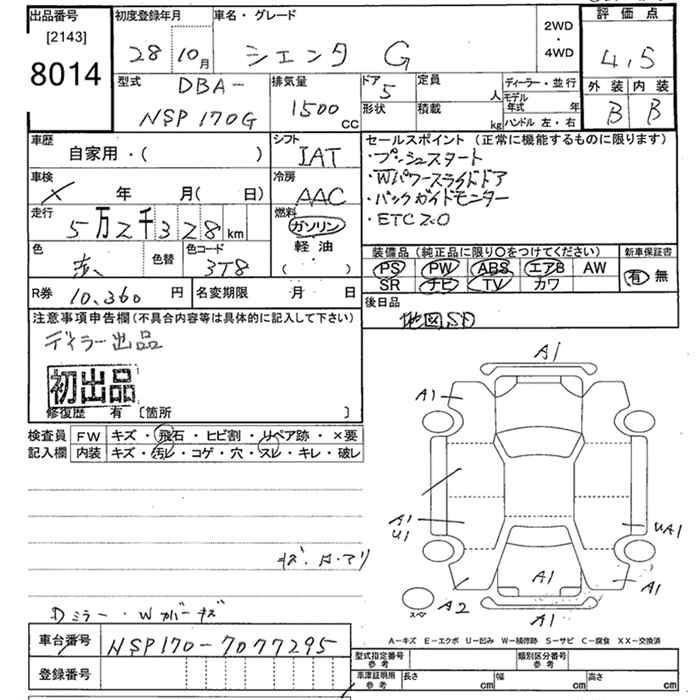 出品番号
[2143]
8014
初度登録年月
28 10月
車名・グレード
シエンタ G
2WD
・
4WD
評価点
4,5
外装 内装
B B
型式
DBA-
NSP170G
排気量
1500cc
ドア
5
形状
定員
人
積載
kg
ディーラー・並行
モデル年式 年
ハンドル 左・右
車歴
自家用・( )
シフト
IAT
車検
× 年 月( 日)
冷房
AAC
走行
5万2千328km
燃料
ガソリン
軽油
( )
色
色替
色コード
3T8
R券
10,360円
名変期限 月 日
セールスポイント (正常に機能するものに限ります)
・プッシュスタート
・Wパワースライドドア
・バックガイドモニター
・ETC2.0
装備品(純正品に限り○をつけてください)
PS PW ABS エアB AW
SR ナビ TV カワ
新車保証書
有 無
後日品
地図SD
注意事項申告欄(不具合内容等は具体的に記入して下さい)
ディラー出品
初出品
修復歴 有 〔箇所 〕
検査員記入欄
FW キズ・飛石・ヒビ割・リペア跡・×要
内装 キズ・汚レ・コゲ・穴・スレ・キレ・破レ
Dミラー・Wカバーキズ
車台番号
NSP170-7077295
登録番号
A1
A1
A1
U1
UA1
A1
A2
A1
A1
スペア
A-キズ E-エクボ U-凹み W-補修跡 S-サビ C-腐食 XX-交換済
型式指定番号
参考
類別区分番号
参考
車庫証明用
参考
長さ cm
幅 cm
高さ cm